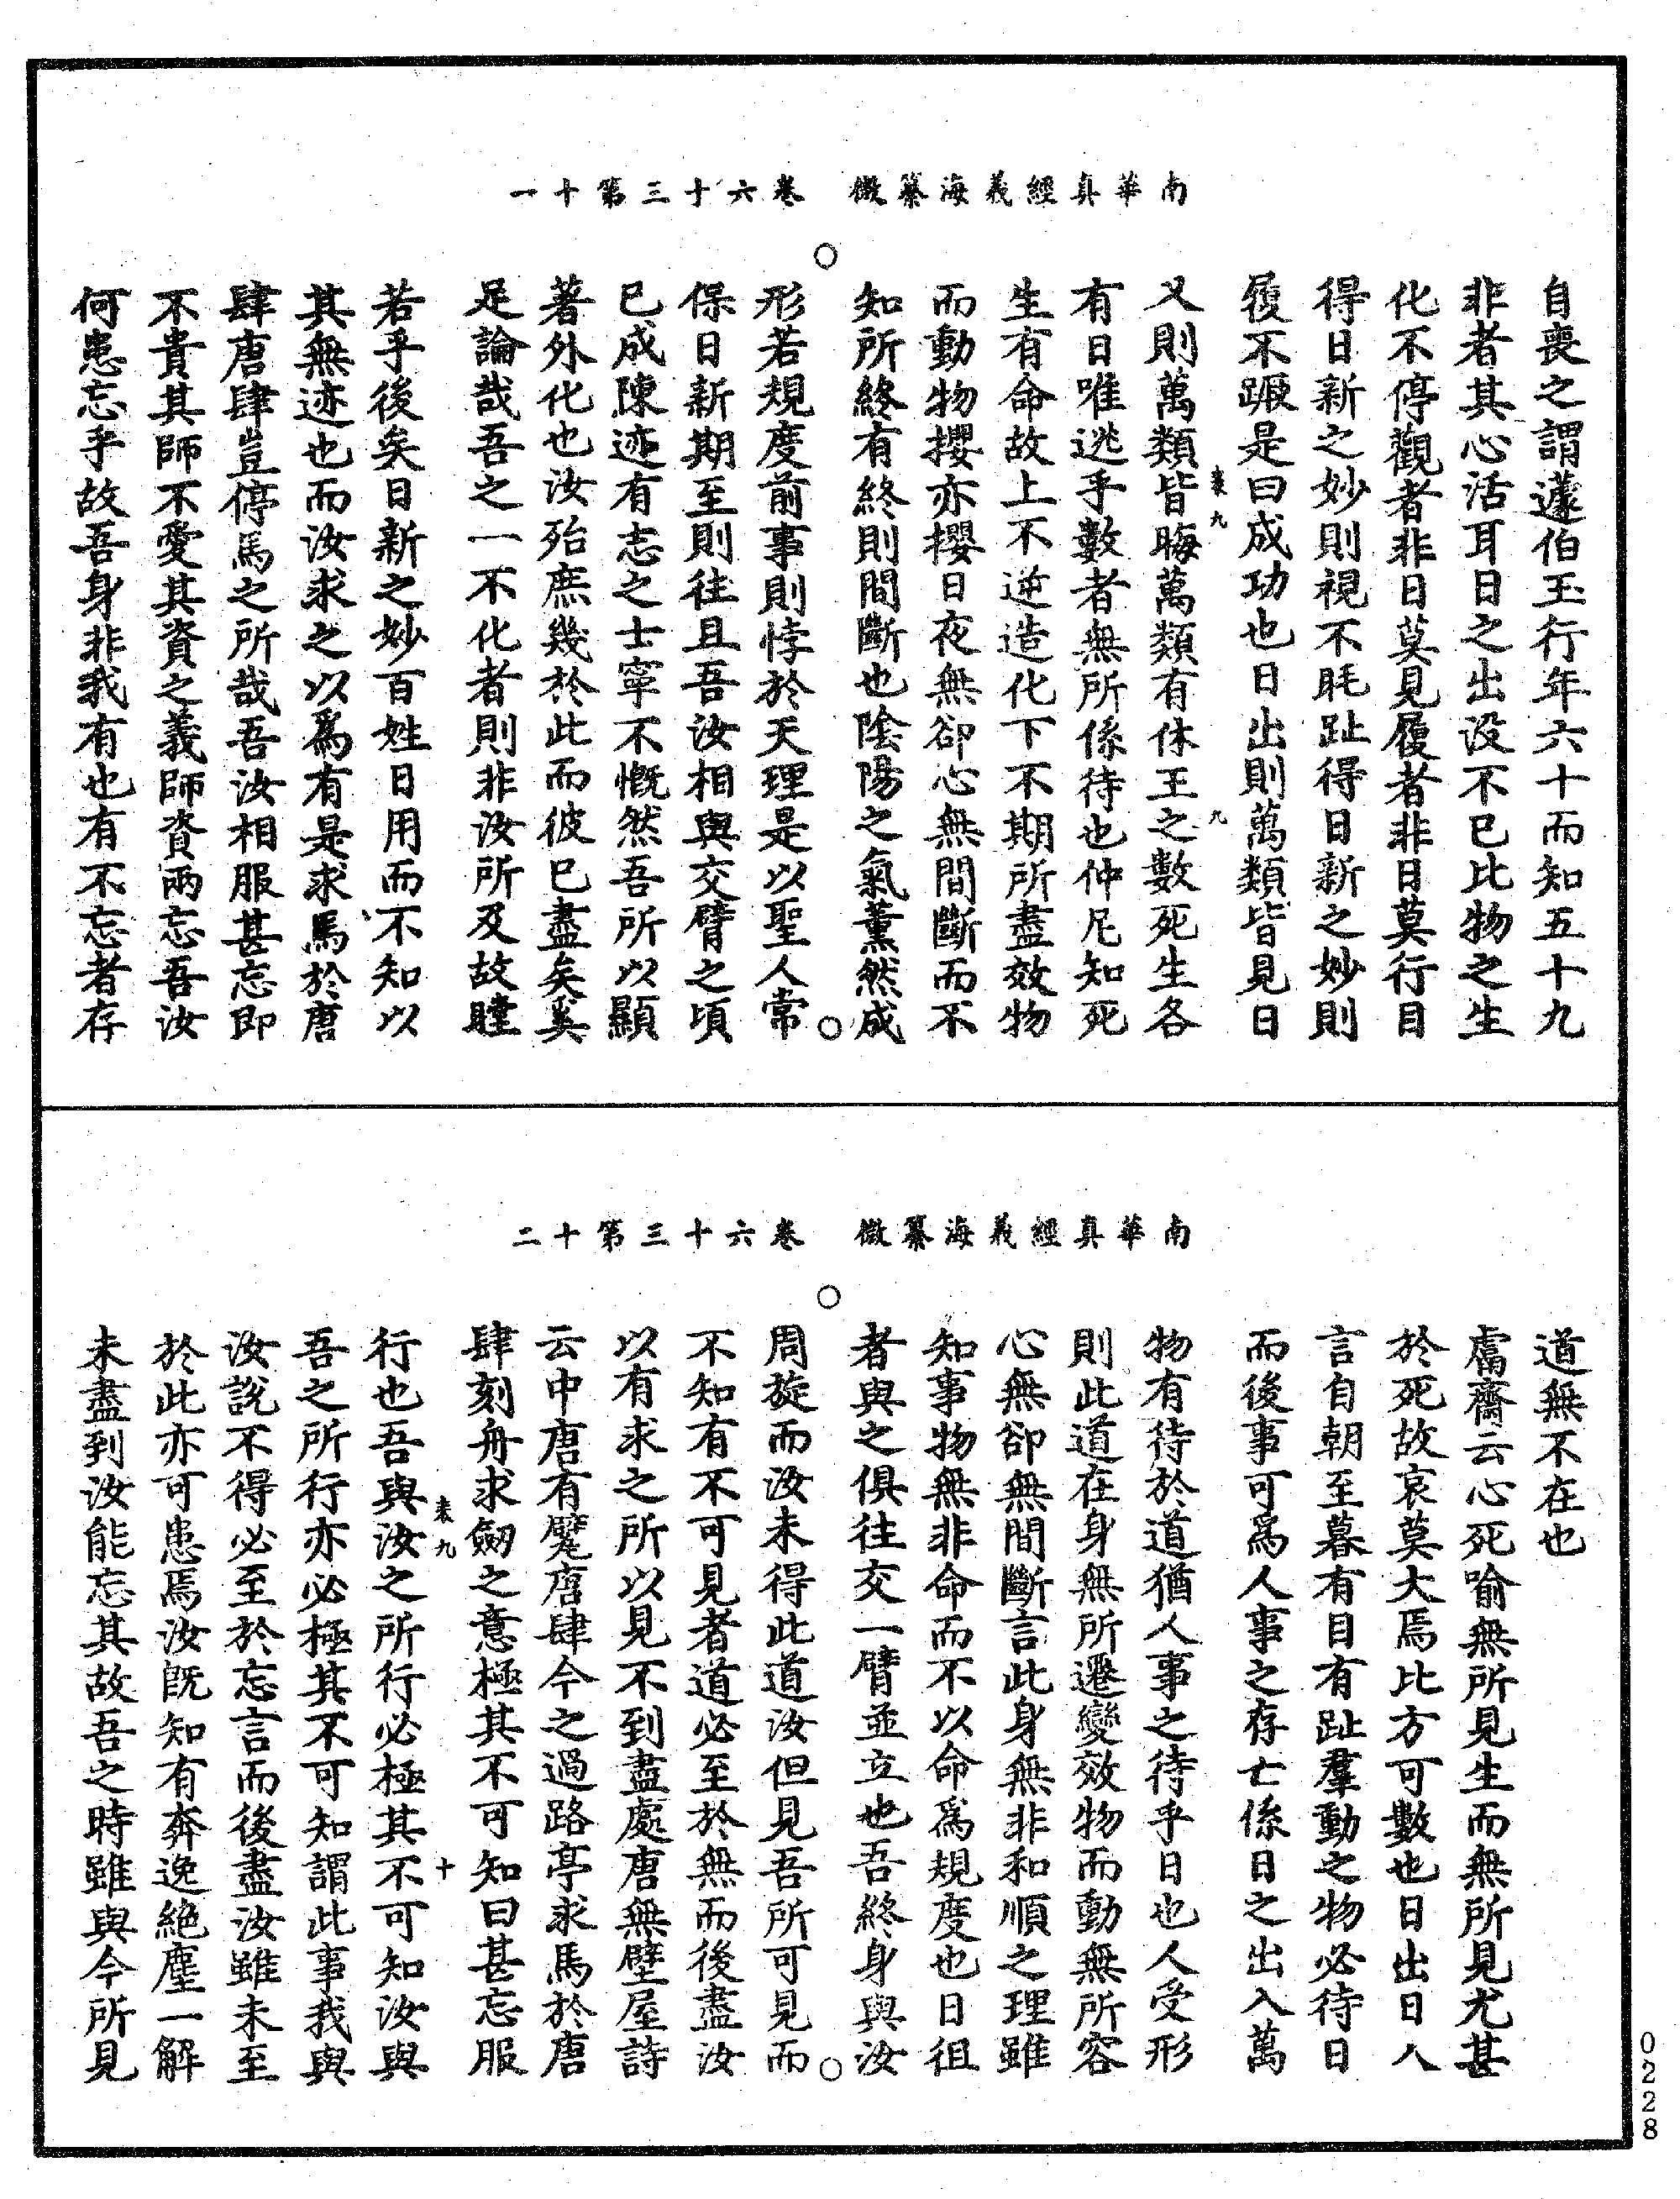 南華真經義海纂微　卷六十三第十一
自喪之謂蘧伯玉行年六十而知五十九
非者其心活耳日之出没不已比物之生
化不停觀者非日莫見履者非日莫行目
得日新之妙則視不眊趾得日新之妙則
履不蹶是曰成功也日出則萬類皆見日
又則萬類皆晦萬類有休王之數死生各
有日唯逃乎數者無所係待也仲尼知死
生有命故上不逆造化下不期所盡效物
而動物攖亦攖日夜無郤心無間斷而不
知所終有終則間斷也陰陽之氣薰然成
形若規度前事則悖於天理是以聖人常
保日新期至則往且吾汝相與交臂之頃
已成陳迹有志之士寧不慨然吾所以顯
著外化也汝殆庶幾於此而彼已盡矣奚
足論哉吾之一不化者則非汝所及故瞠
若乎後矣日新之妙百姓日用而不知以
其無迹也而汝求之以爲有是求馬於唐
肆唐肆豈停馬之所哉吾汝相服甚忘即
不貴其師不愛其資之義師資兩忘吾汝
何患忘乎故吾身非我有也有不忘者存
南華真經義海纂微　卷六十三第十二
道無不在也
鬳齋云心死喻無所見生而無所見尤甚
於死故哀莫大焉比方可數也日出日入
言自朝至暮有目有趾羣動之物必待日
而後事可爲人事之存亡係日之出入萬
物有待於道猶人事之待乎日也人受形
則此道在身無所遷變效物而動無所容
心無郤無間斷言此身無非和順之理雖
知事物無非命而不以命爲規度也日徂
者與之俱往交一臂並立也吾終身與汝
周旋而汝未得此道汝但見吾所可見而
不知有不可見者道必至於無而後盡汝
以有求之所以見不到盡處唐無壁屋詩
云中唐有甓唐肆今之過路亭求馬於唐
肆刻舟求劒之意極其不可知曰甚忘服
行也吾與汝之所行必極其不可知汝與
吾之所行亦必極其不可知謂此事我與
汝說不得必至於忘言而後盡汝雖未至
於此亦可患焉汝既知有奔逸絶塵一解
未盡到汝能忘其故吾之時雖與今所見
0228